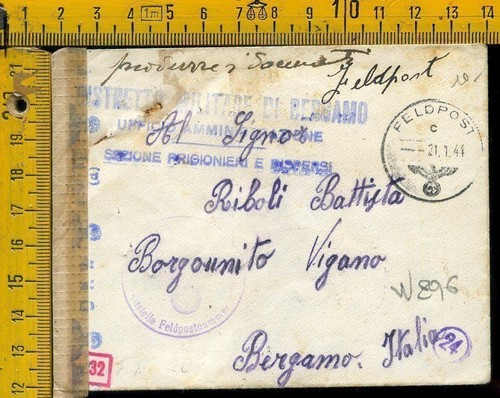 produrre i documenti
Feldpost
DISTRETTO MILITARE DI BERGAMO
UFFICIO AMMINISTRAZIONE
SEZIONE PRIGIONIERI E DISPERSI
FELDPOST
c
21.1.44
Al Signor
Riboli Battista
Borgounito Vigano
W 896
Feldpostnummer
Bergamo. Italia
24
32